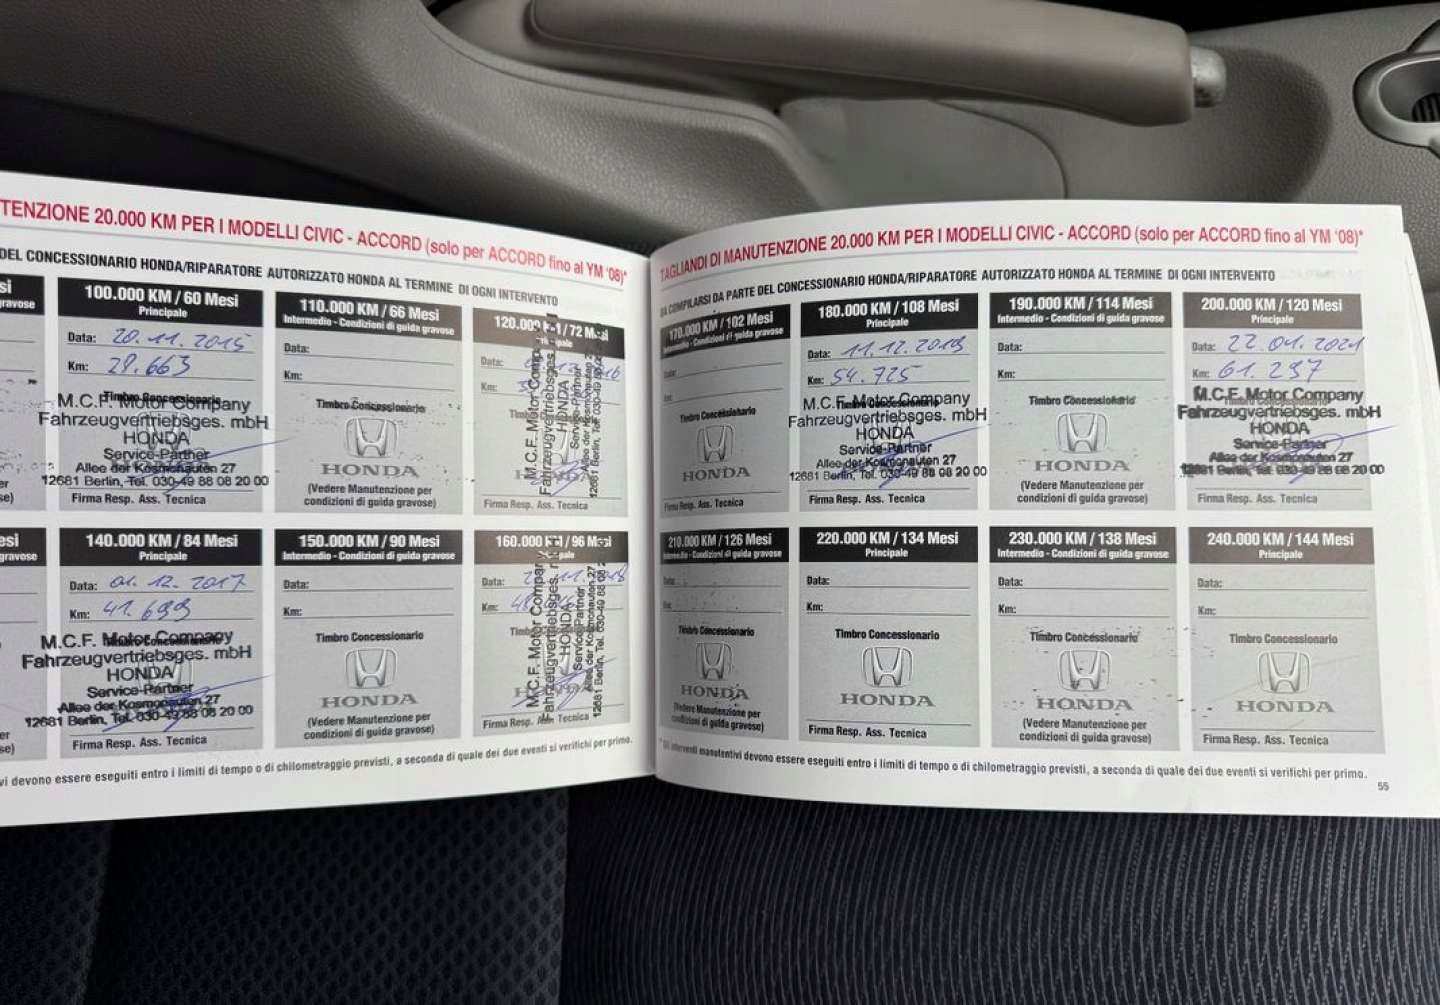 TENZIONE 20.000 KM PER I MODELLI CIVIC - ACCORD (solo per ACCORD fino al YM '08)*
DEL CONCESSIONARIO HONDA/RIPARATORE AUTORIZZATO HONDA AL TERMINE DI OGNI INTERVENTO
si
gravose
100.000 KM / 60 Mesi
Principale
Data: 20.11.2015
Km: 28.663
Timbro Concessionario
M.C.F. Motor Company
Fahrzeugvertriebsges. mbH
HONDA
Service-Partner
Allee der Kosmonauten 27
12681 Berlin, Tel. 030-49 88 08 20 00
Firma Resp. Ass. Tecnica
110.000 KM / 66 Mesi
Intermedio - Condizioni di guida gravose
Data:
Km:
Timbro Concessionario
HONDA
(Vedere Manutenzione per
condizioni di guida gravose)
120.000 / 72 Mesi
Data:
Km:
M.C.F. Motor Company
Fahrzeugvertriebsges.
HONDA
Service-Partner
Allee der Kosmonauten
12681 Berlin, Tel. 030-49 88 08
Firma Resp. Ass. Tecnica
er
se)
esi
gravose
140.000 KM / 84 Mesi
Principale
Data: 01.12.2017
Km: 41.699
M.C.F. Motor Company
Fahrzeugvertriebsges. mbH
HONDA
Service-Partner
Allee der Kosmonauten 27
12681 Berlin, Tel. 030-49 88 08 20 00
Firma Resp. Ass. Tecnica
150.000 KM / 90 Mesi
Intermedio - Condizioni di guida gravose
Data:
Km:
Timbro Concessionario
HONDA
(Vedere Manutenzione per
condizioni di guida gravose)
160.000 KM / 96 Mesi
Data:
Km:
M.C.F. Motor Company
Fahrzeugvertriebsges.
HONDA
Service-Partner
Allee der Kosmonauten 27
12681 Berlin, Tel. 030-49 88 08 2
Firma Resp. Ass. Tecnica
er
se)
vi devono essere eseguiti entro i limiti di tempo o di chilometraggio previsti, a seconda di quale dei due eventi si verifichi per primo.
TAGLIANDI DI MANUTENZIONE 20.000 KM PER I MODELLI CIVIC - ACCORD (solo per ACCORD fino al YM '08)*
DA COMPILARSI DA PARTE DEL CONCESSIONARIO HONDA/RIPARATORE AUTORIZZATO HONDA AL TERMINE DI OGNI INTERVENTO
170.000 KM / 102 Mesi
Intermedio - Condizioni di guida gravose
Data:
Km:
Timbro Concessionario
HONDA
Firma Resp. Ass. Tecnica
180.000 KM / 108 Mesi
Principale
Data: 11.12.2019
Km: 54.725
M.C.F. Motor Company
Fahrzeugvertriebsges. mbH
HONDA
Service-Partner
Allee der Kosmonauten 27
12681 Berlin, Tel. 030-49 88 08 20 00
Firma Resp. Ass. Tecnica
190.000 KM / 114 Mesi
Intermedio - Condizioni di guida gravose
Data:
Km:
Timbro Concessionario
HONDA
(Vedere Manutenzione per
condizioni di guida gravose)
200.000 KM / 120 Mesi
Principale
Data: 22.01.2021
Km: 61.237
M.C.F. Motor Company
Fahrzeugvertriebsges. mbH
HONDA
Service-Partner
Allee der Kosmonauten 27
12681 Berlin, Tel. 030-49 88 08 20 00
Firma Resp. Ass. Tecnica
210.000 KM / 126 Mesi
Intermedio - Condizioni di guida gravose
Data:
Km:
Timbro Concessionario
HONDA
(Vedere Manutenzione per
condizioni di guida gravose)
220.000 KM / 134 Mesi
Principale
Data:
Km:
Timbro Concessionario
HONDA
Firma Resp. Ass. Tecnica
230.000 KM / 138 Mesi
Intermedio - Condizioni di guida gravose
Data:
Km:
Timbro Concessionario
HONDA
(Vedere Manutenzione per
condizioni di guida gravose)
240.000 KM / 144 Mesi
Principale
Data:
Km:
Timbro Concessionario
HONDA
Firma Resp. Ass. Tecnica
* Gli interventi manutentivi devono essere eseguiti entro i limiti di tempo o di chilometraggio previsti, a seconda di quale dei due eventi si verifichi per primo.
55